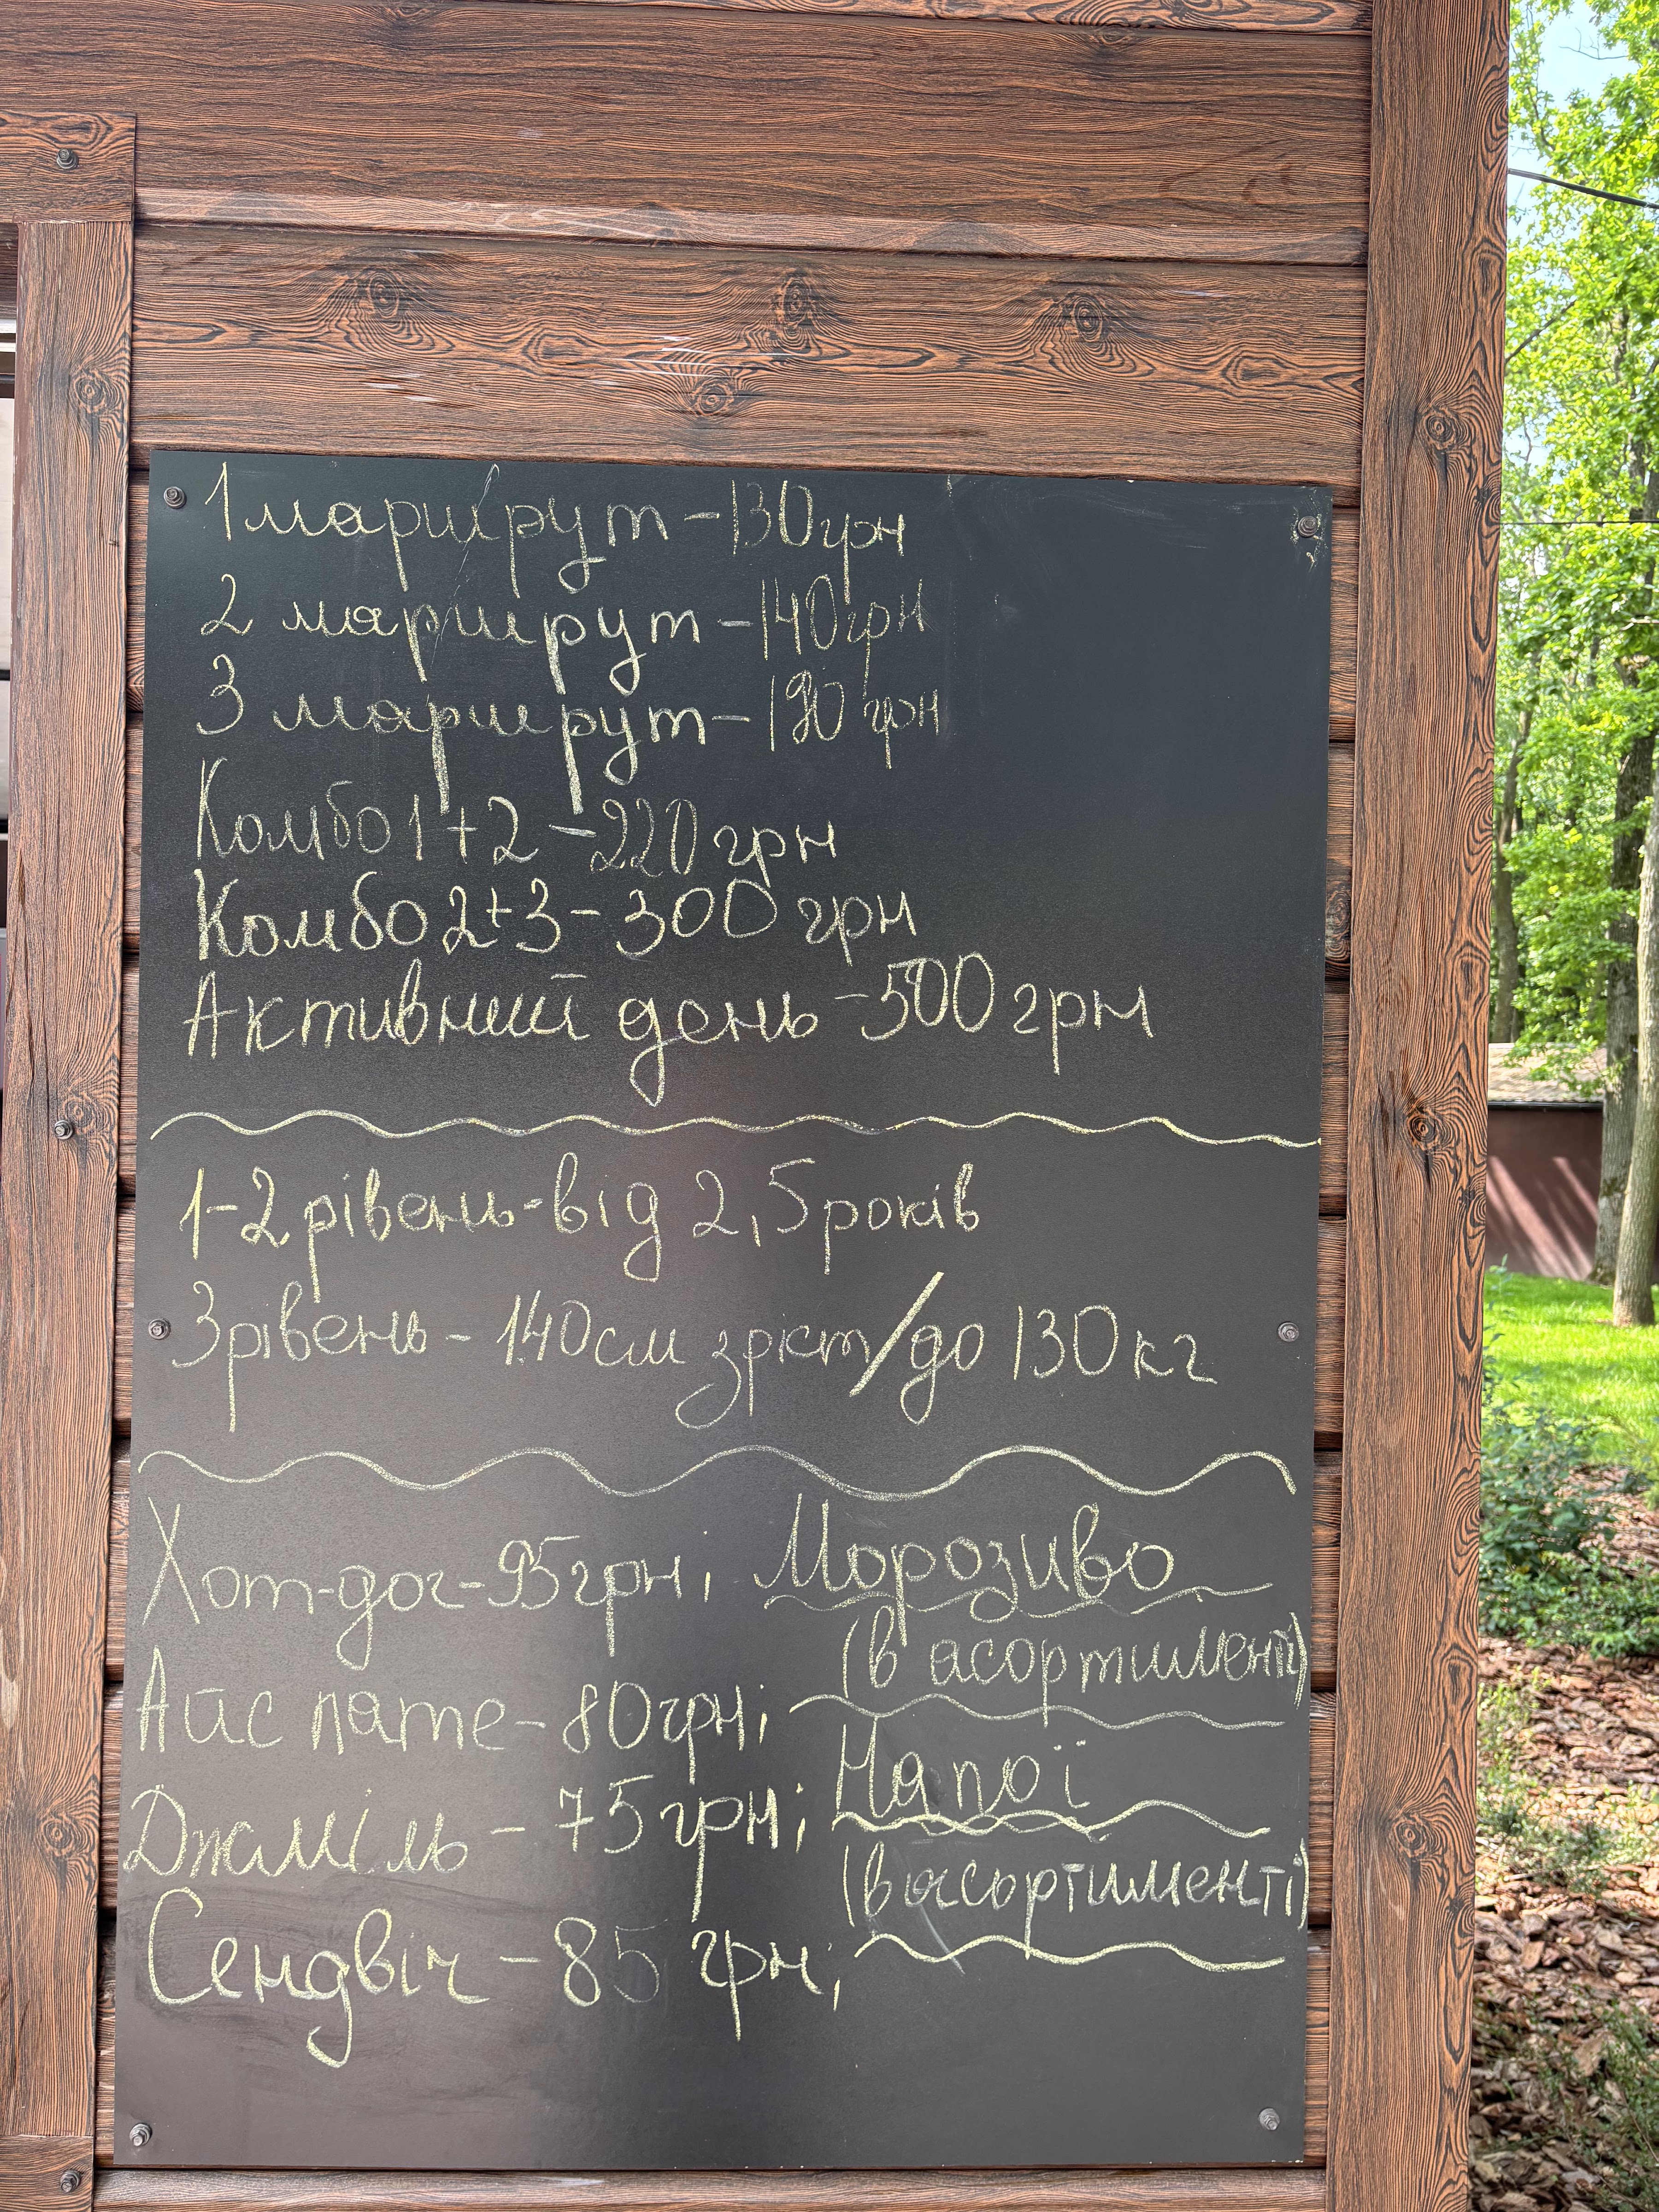 1 маршрут - 130 грн
2 маршрут - 140 грн
3 маршрут - 190 грн
Комбо 1+2 - 220 грн
Комбо 2+3 - 300 грн
Активний день - 500 грн
1-2 рівень - від 2,5 років
3 рівень - 140 см зріст/до 130 кг
Хот-дог - 95 грн;
Айс лате - 80 грн;
Джміль - 75 грн;
Сендвіч - 85 грн;
Морозиво
(в асортименті)
Напої
(в асортименті)